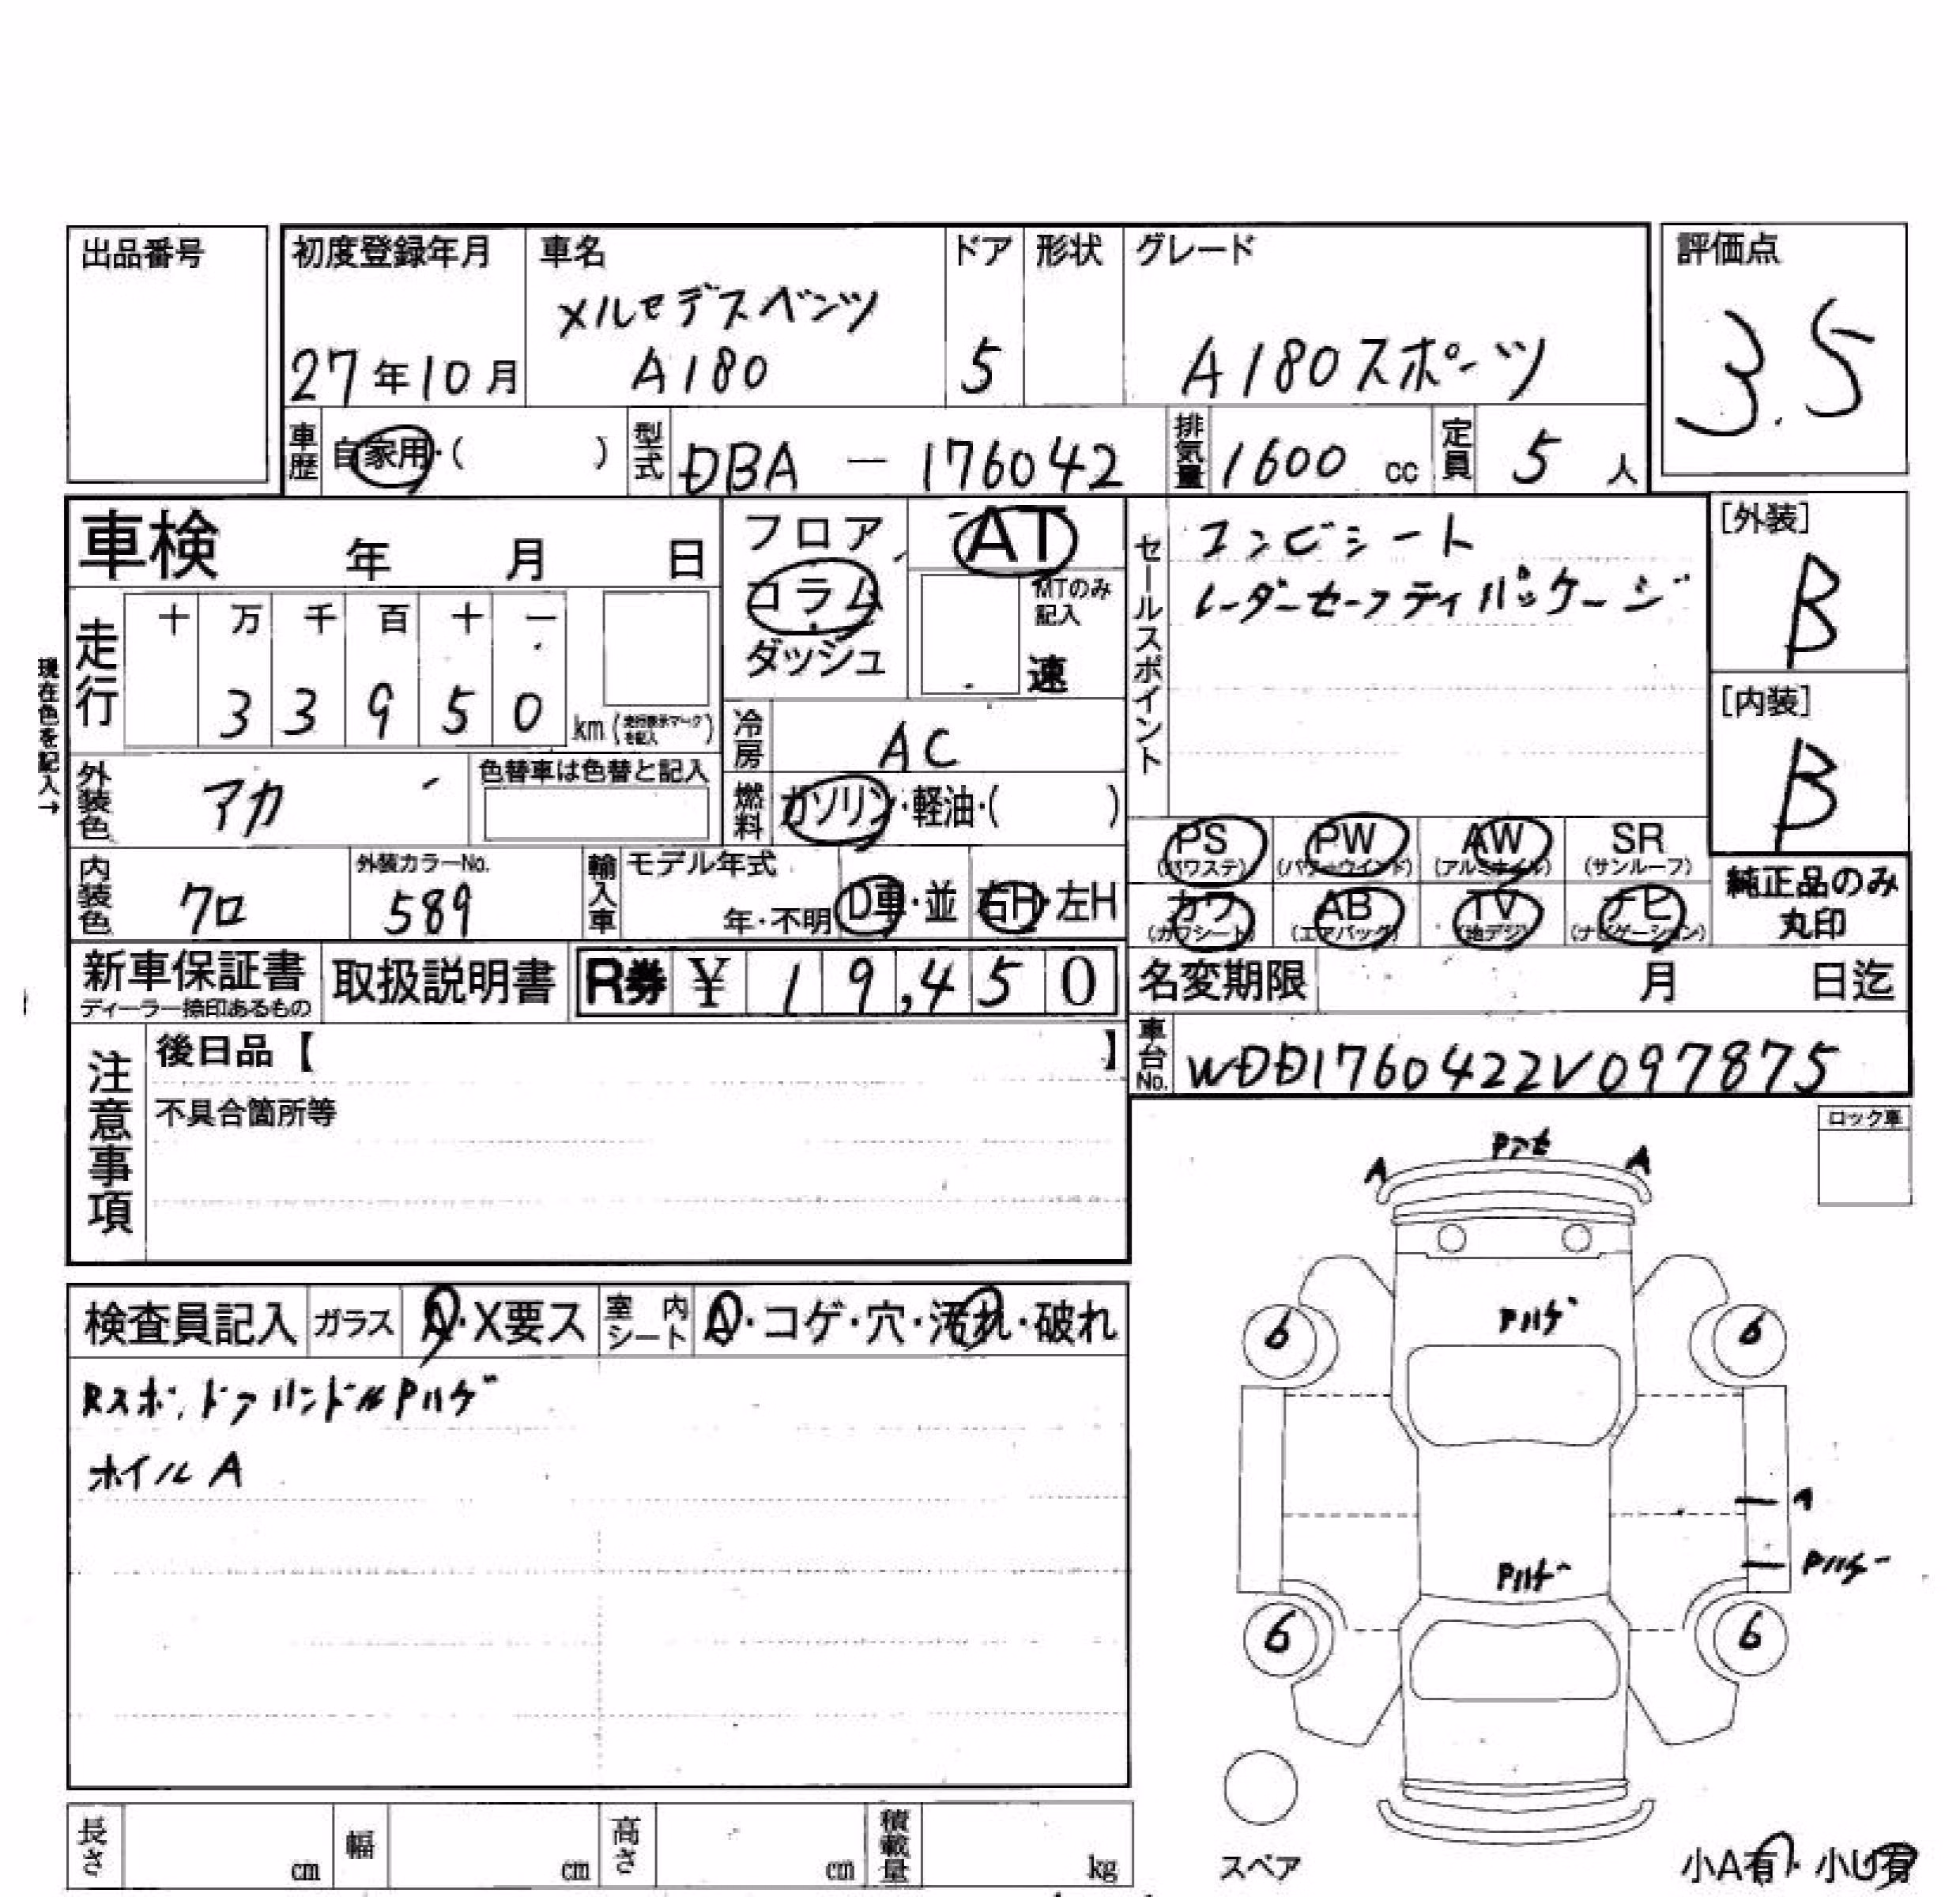 出品番号
初度登録年月
27年10月
車名
メルセデスベンツ
A180
ドア
5
形状
グレード
A180スポーツ
評価点
3.5
車歴
自家用・( )
型式
DBA － 176042
排気量
1600 cc
定員
5 人
車検 年 月 日
フロア
コラム
ダッシュ
AT
MTのみ
記入
速
セールスポイント
コンビシート
レーダーセーフティパッケージ
[外装]
B
[内装]
B
現在色を記入→
走行
十 万 千 百 十 一
3 3 9 5 0
km (走行表示マークを記入)
冷房
AC
外装色
アカ
色替車は色替と記入
燃料
ガソリン・軽油・( )
PS
(パワステ)
PW
(パワーウインド)
AW
(アルミホイル)
SR
(サンルーフ)
内装色
クロ
外装カラーNo.
589
輸入車
モデル年式
年・不明
D車・並
右H・左H
カワ
(カワシート)
AB
(エアバッグ)
TV
(地デジ)
ナビ
(ナビゲーション)
純正品のみ
丸印
新車保証書
ディーラー捺印あるもの
取扱説明書
R券 ¥ 19,450
名変期限 月 日迄
車台No.
WDD1760422V097875
注意事項
後日品【 】
不具合箇所等
ロック車
Pアセ
A A
Pハゲ
6 6
A
Pハゲ
Pハゲ
6 6
スペア
小A有・小U有
検査員記入
ガラス
A・X要ス
室内シート
A・コゲ・穴・汚れ・破れ
Rスポ,ドアハンドルPハゲ
ホイルA
長さ cm
幅 cm
高さ cm
積載量 kg